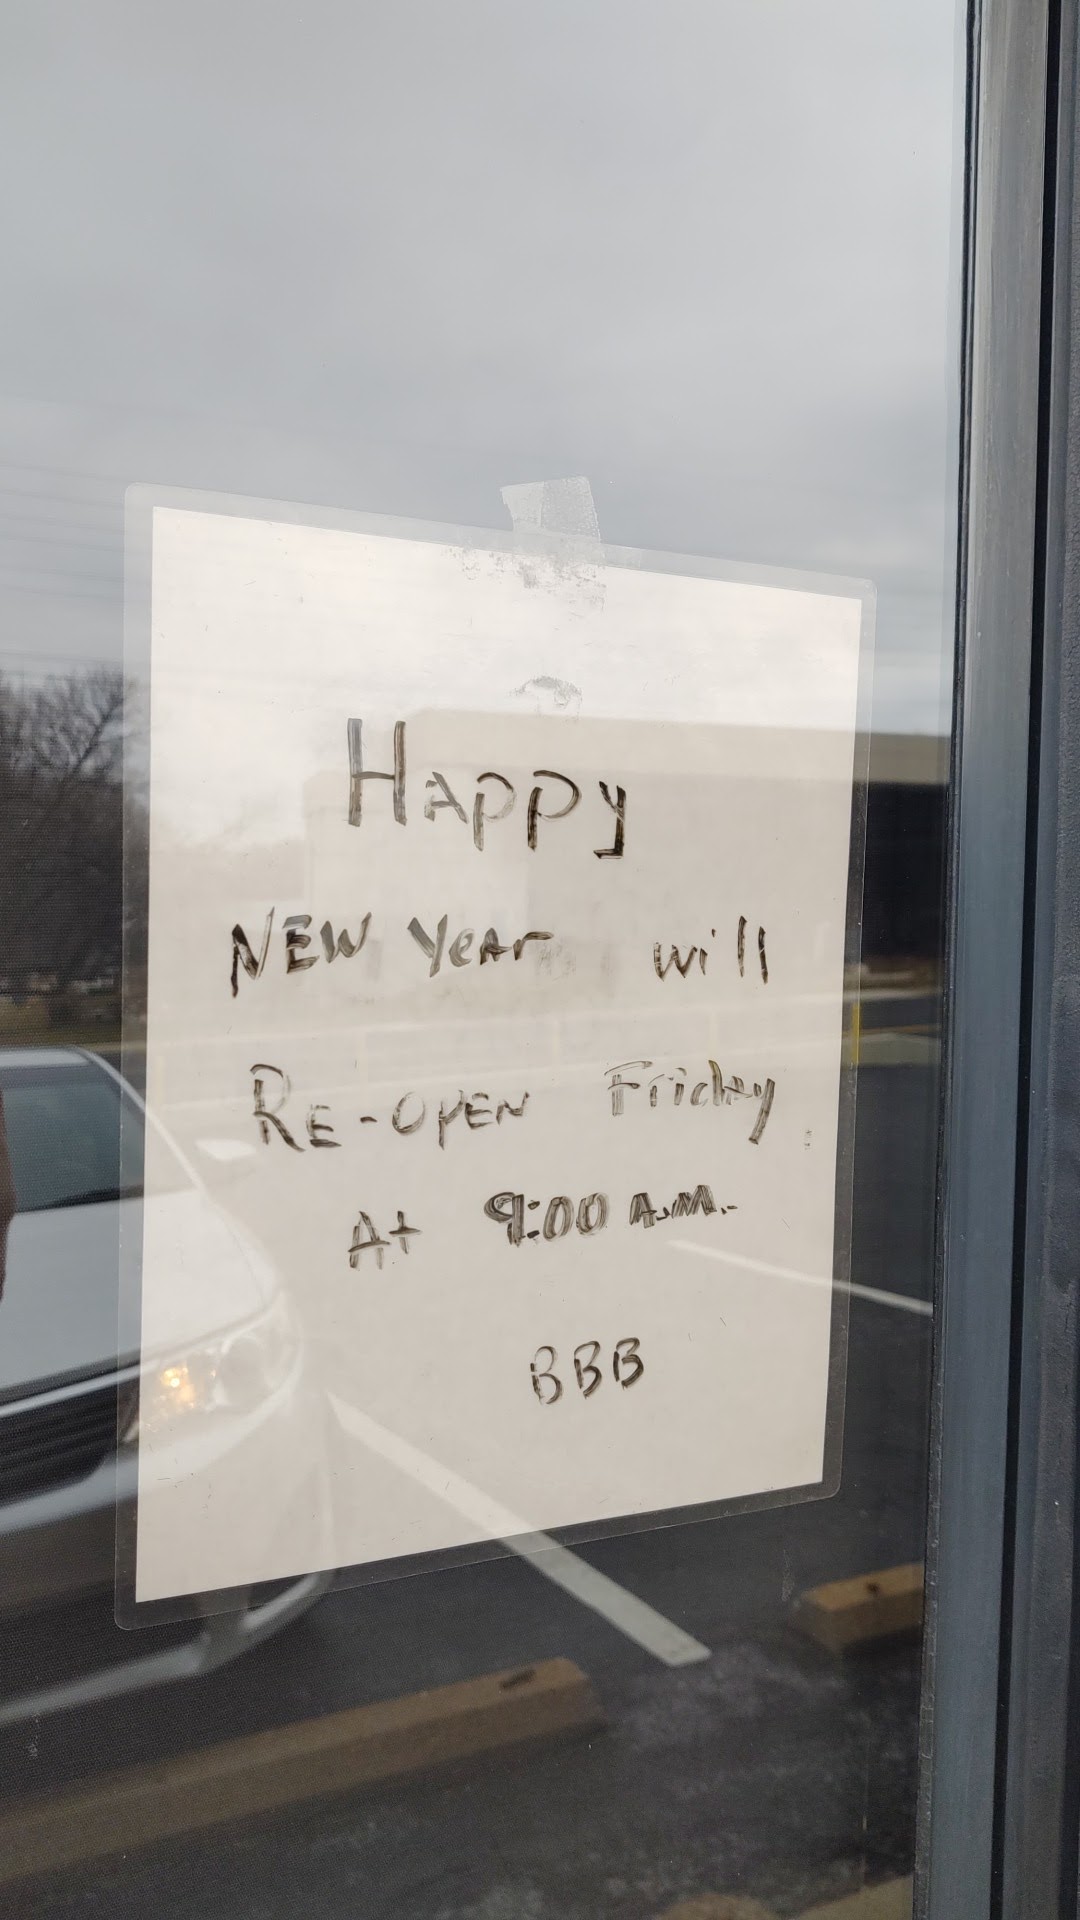 Happy
NEW Year will
RE-OPEN Friday
At 9:00 A.M.
BBB